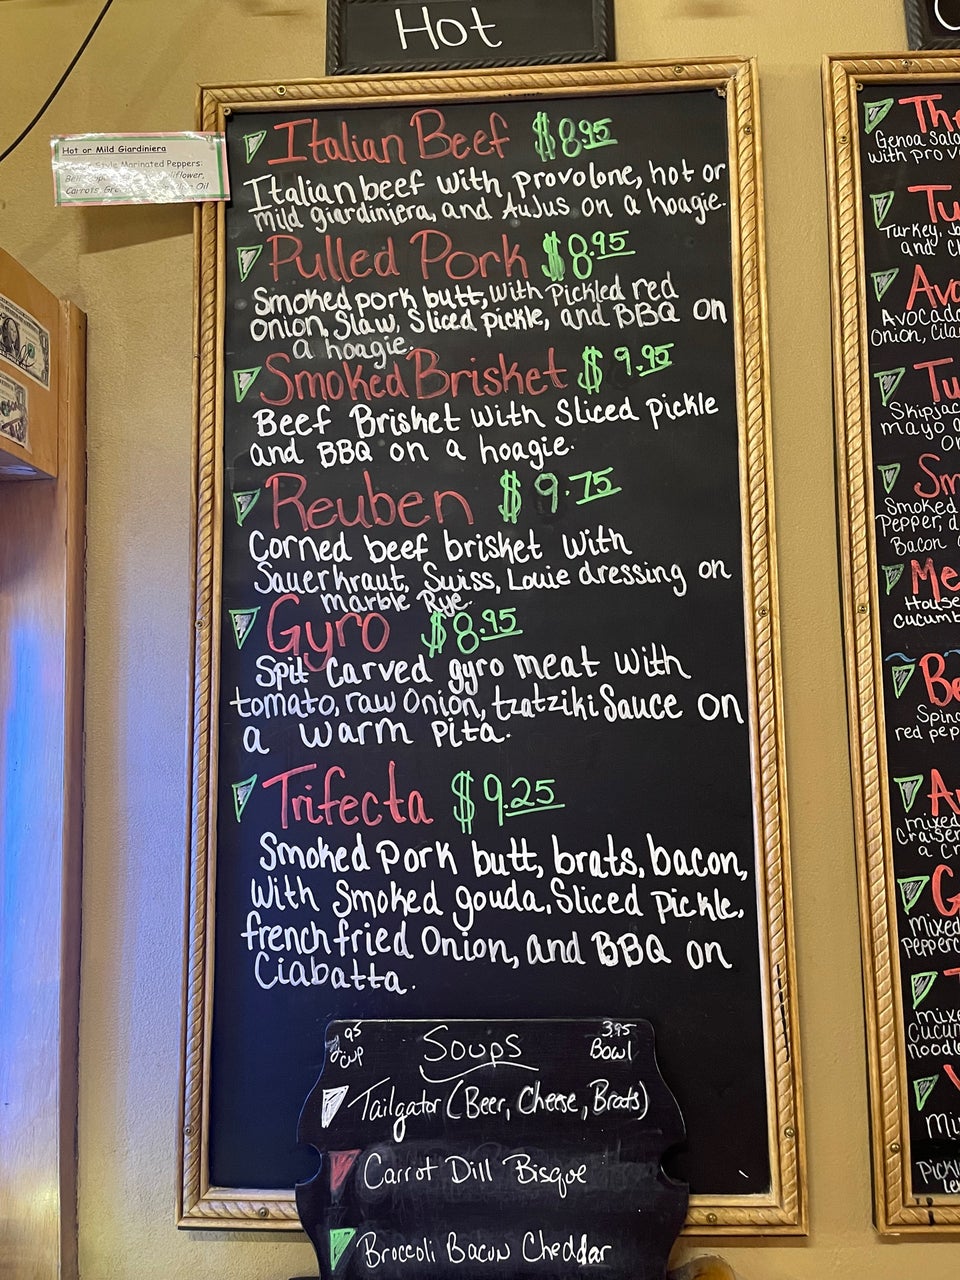 Hot
Hot or Mild Giardiniera
Marinated Peppers:
Oil
Italian Beef $8.95
Italian beef with provolone, hot or
mild giardiniera, and AuJus on a hoagie.
Pulled Pork $8.95
Smoked pork butt, with Pickled red
onion, Slaw, Sliced pickle, and BBQ on
a hoagie.
Smoked Brisket $9.95
Beef Brisket with Sliced Pickle
and BBQ on a hoagie.
Reuben $9.75
Corned beef brisket with
Sauerkraut, Swiss, Louie dressing on
marble Rye.
Gyro $8.95
Spit Carved gyro meat with
tomato, raw Onion, tzatziki Sauce on
a warm Pita.
Trifecta $9.25
Smoked Pork butt, brats, bacon,
With Smoked gouda, Sliced Pickle,
french fried Onion, and BBQ on
Ciabatta.
.95 Soups 3.95
cup Bowl
Tailgator (Beer, Cheese, Brats)
Carrot Dill Bisque
Broccoli Bacon Cheddar
Genoa
with
Turkey,
and
Onion,
mayo
Smoked
Pepper,
Bacon
House
red
mixed
a
Mixed